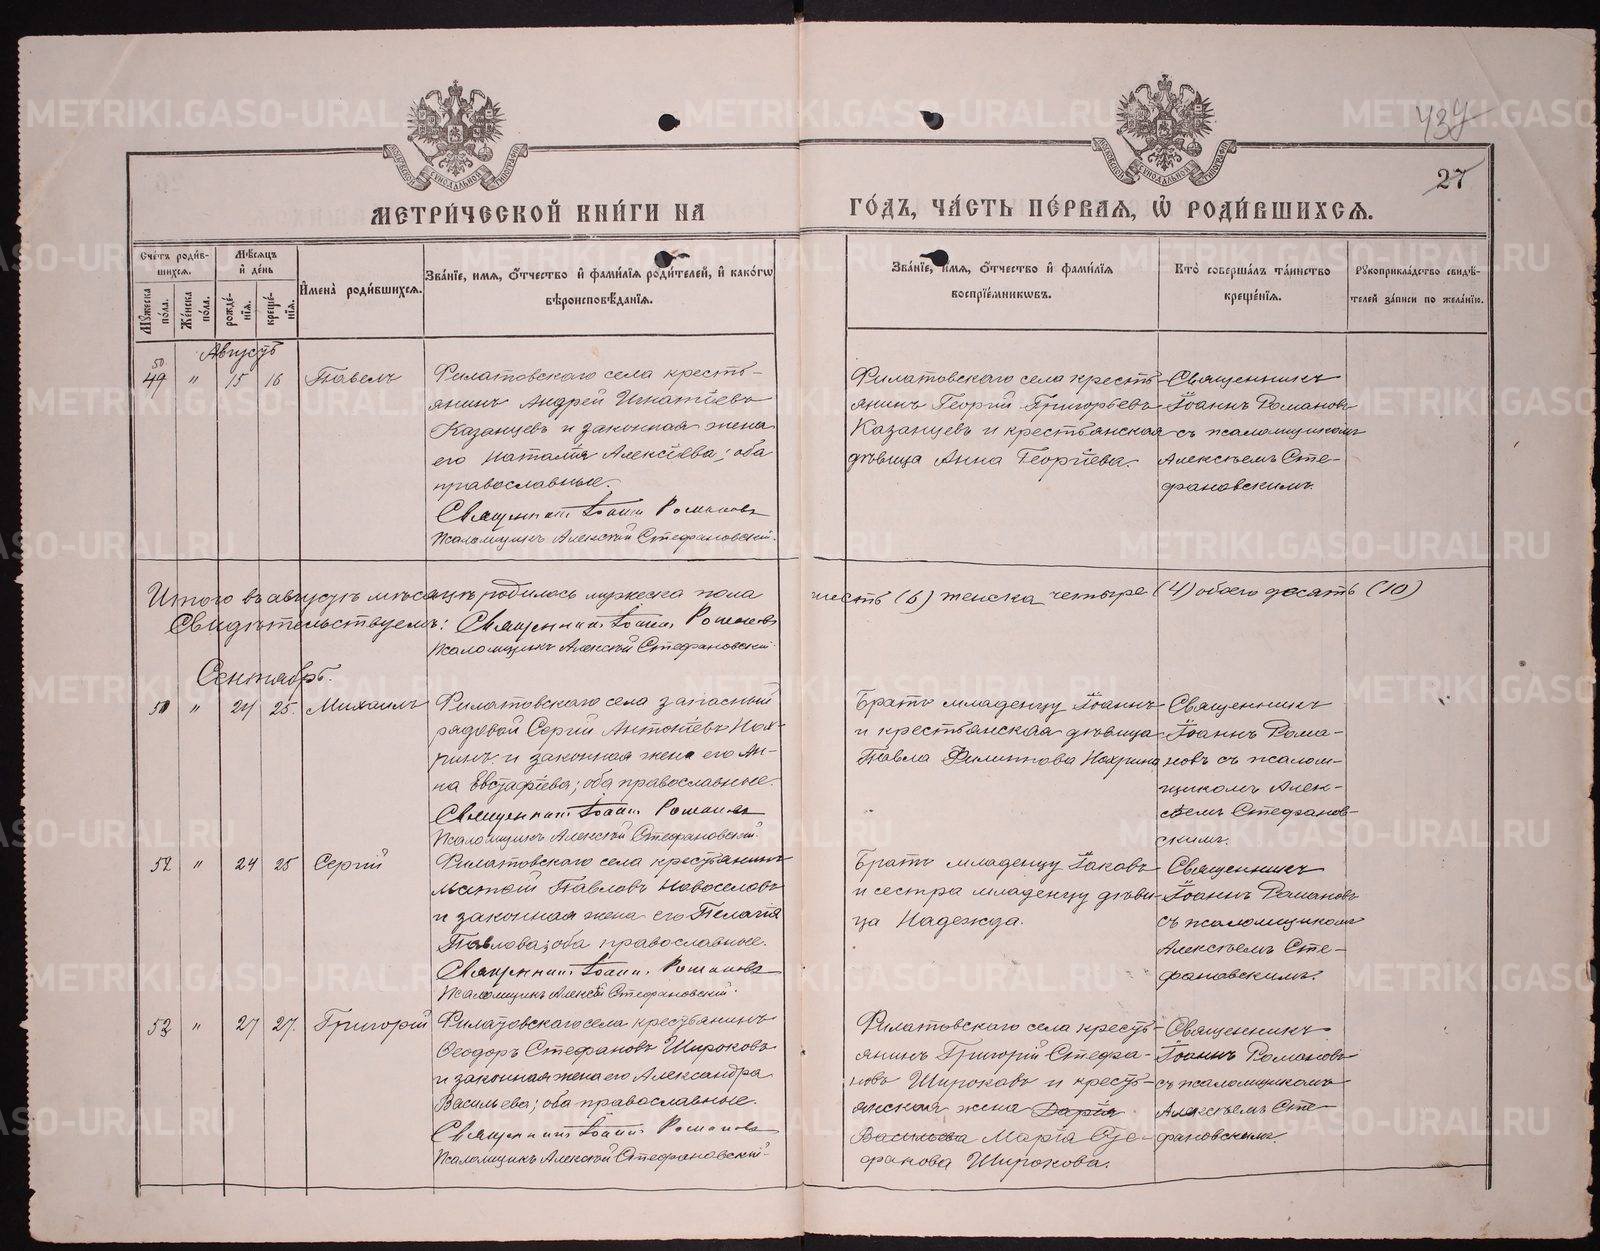 METRIKI.GASO-URAL.RU
27
МЕТРИ́ЧЕСКОЙ КНИ́ГИ НА ГО́ДЪ, ЧА́СТЬ ПЕ́РВАЯ, Ѡ҆ РОДИ́ВШИХСЯ.
Сче́тъ роди́в-
шихся.
Мꙋ́жеска по́ла.
Же́нска по́ла.
Мѣ́сяцъ
и҆ де́нь
рожде́-
нїя.
креще́-
нїя.
И҆мена̀ роди́вшихся.
Зва́нїе, имя, ѻ҆́тчество и҆ фами́лїя роди́телей, и҆ како́гѡ
вѣроисповѣ́данїя.
Зва́нїе, имя, ѻ҆́тчество и҆ фами́лїя
воспрїе́мникѡвъ.
Кто̀ соверша́лъ та́инство
креще́нїя.
Рꙋкоприкла́дство свидѣ́-
телей за́писи по жела́нїю.
Августъ
50
49 " 15 16 Павелъ
Филатовскаго села кресть-
янинъ Андрей Игнатіевъ
Казанцевъ и законная жена
его Наталія Алексіева; оба
православные.
Священникъ Іоаннъ Романовъ
Псаломщикъ Алексѣй Стефановскій.
Филатовскаго села кресть-
янинъ Георгій Григорьевъ
Казанцевъ и крестьянская
дѣвица Анна Георгіева.
Священникъ
Іоаннъ Романовъ
съ псаломщикомъ
Алексѣемъ Сте-
фановскимъ.
Итого въ августѣ мѣсяцѣ родилось мужеска пола шесть (6) женска четыре (4) обоего десять (10)
Свидѣтельствуемъ: Священникъ Іоаннъ Романовъ
Псаломщикъ Алексѣй Стефановскій.
Сентябрь.
51 " 24 25. Михаилъ
Филатовскаго села запасный
рядовой Сергій Антоніевъ Нах-
ринъ и законная жена его Ан-
на Евстафіева; оба православные.
Священникъ Іоаннъ Романовъ
Псаломщикъ Алексѣй Стефановскій.
Братъ младенцу Іоаннъ
и крестьянская дѣвица
Павла Филиппова Нахрина
Священникъ
Іоаннъ Рома-
новъ съ псалом-
щикомъ Алек-
сѣемъ Стефанов-
скимъ.
52 " 24 25 Сергій
Филатовскаго села крестьянинъ
Матѳій Павловъ Новоселовъ
и законная жена его Пелагія
Павлова; оба православные.
Священникъ Іоаннъ Романовъ
Псаломщикъ Алексѣй Стефановскій.
Братъ младенцу Іаковъ
и сестра младенцу дѣви-
ца Надежда.
Священникъ
Іоаннъ Романовъ
съ псаломщикомъ
Алексѣемъ Сте-
фановскимъ.
53 " 27 27. Григорій
Филатовскаго села крестьянинъ
Ѳеодоръ Стефановъ Широковъ
и законная жена его Александра
Васильева; оба православные.
Священникъ Іоаннъ Романовъ
Псаломщикъ Алексѣй Стефановскій.
Филатовскаго села кресть-
янинъ Григорій Стефа-
новъ Широковъ и кресть-
янская жена Дарія
Васильева Марія Сте-
фанова Широкова.
Священникъ
Іоаннъ Романовъ
съ псаломщикомъ
Алексѣемъ Сте-
фановскимъ.